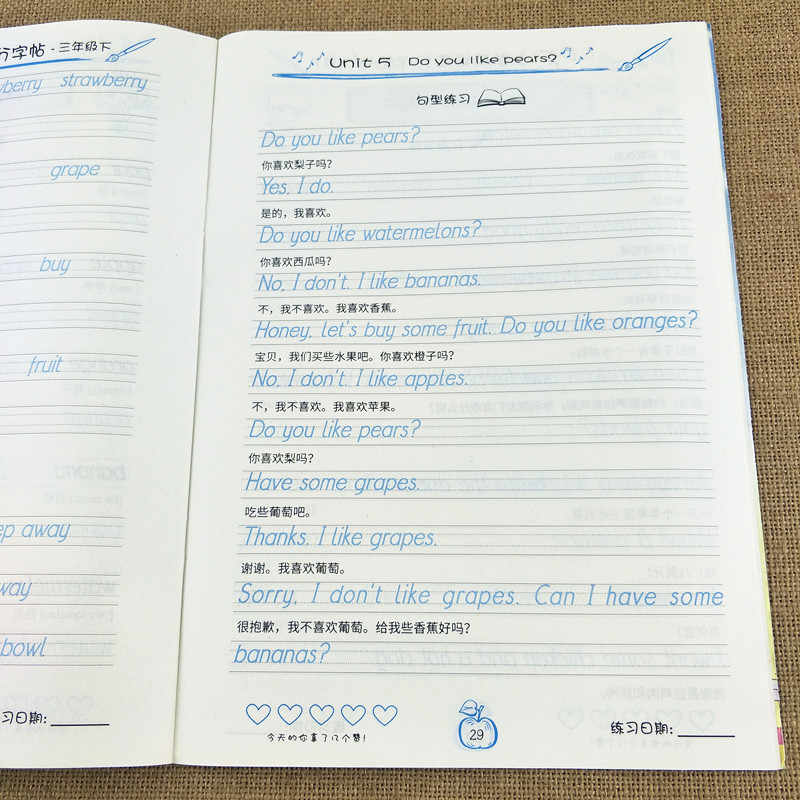 分字帖 - 三年级下
strawberry
grape
buy
fruit
away
bowl
习日期:
Unit 5 Do you like pears?
句型练习
Do you like pears?
你喜欢梨子吗?
Yes, I do.
是的，我喜欢。
Do you like watermelons?
你喜欢西瓜吗?
No, I don't. I like bananas.
不，我不喜欢。我喜欢香蕉。
Honey, let's buy some fruit. Do you like oranges?
宝贝，我们买些水果吧。你喜欢橙子吗?
No, I don't. I like apples.
不，我不喜欢。我喜欢苹果。
Do you like pears?
你喜欢梨吗?
Have some grapes.
吃些葡萄吧。
Thanks. I like grapes.
谢谢。我喜欢葡萄。
Sorry, I don't like grapes. Can I have some
很抱歉，我不喜欢葡萄。给我些香蕉好吗?
bananas?
今天的你拿了几个赞!
29
练习日期: